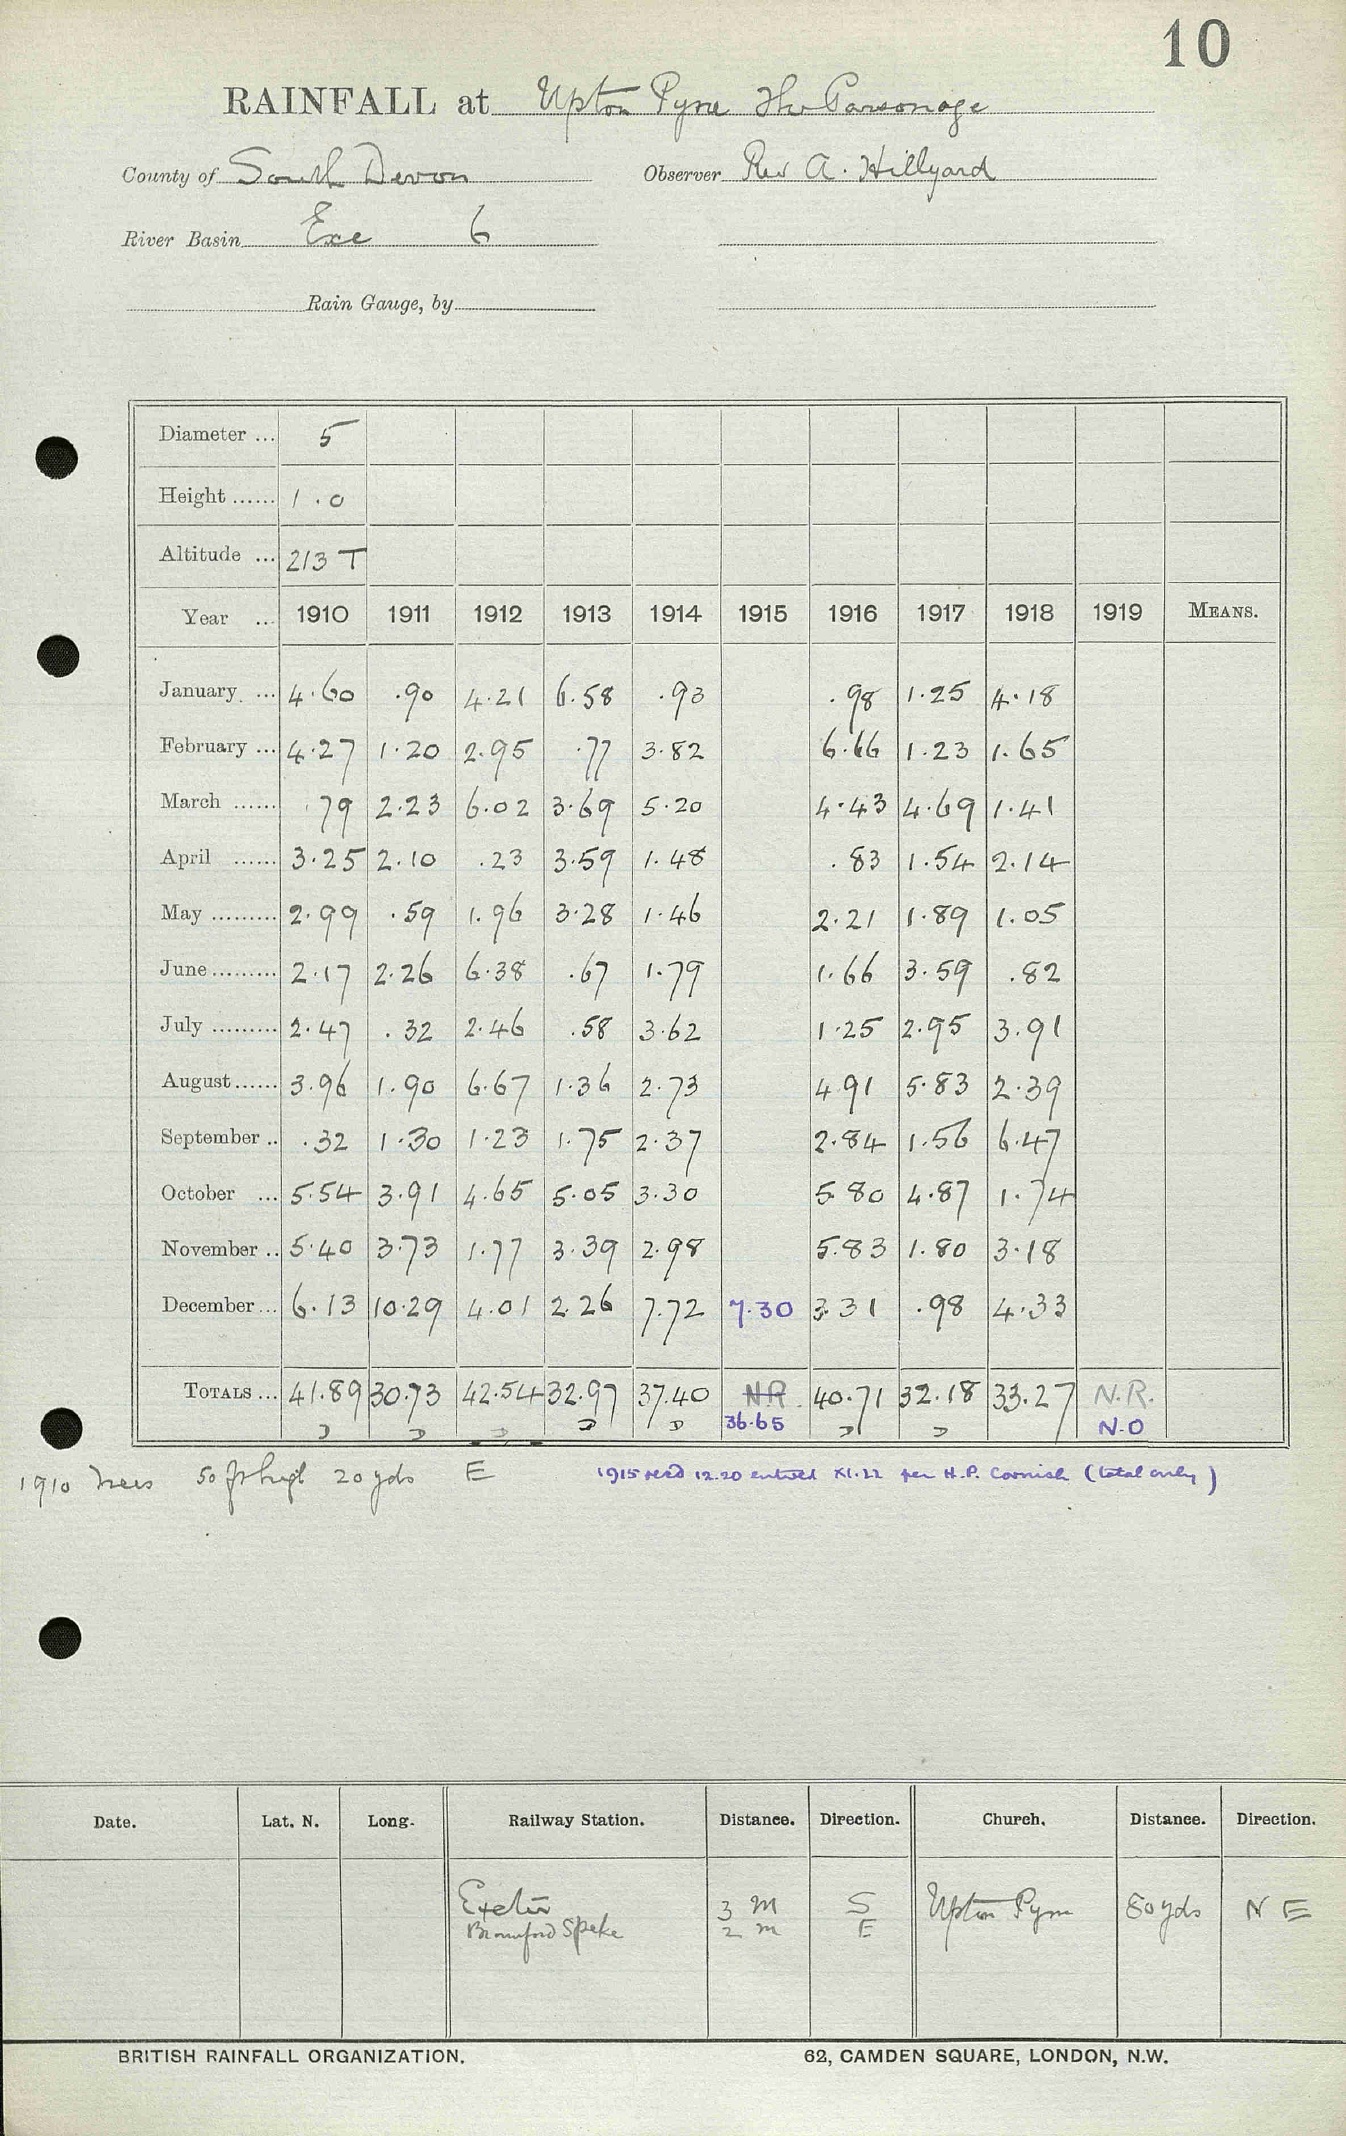 10
RAINFALL at Upton Pyne The Parsonage
County of South Devon Observer Rev A. Hillyard
River Basin Exe 6
Rain Gauge, by
Diameter ... 5
Height ...... 1.0
Altitude ... 213 T
Year ... 1910 1911 1912 1913 1914 1915 1916 1917 1918 1919 MEANS.
January ... 4.60 .90 4.21 6.58 .93 .98 1.25 4.18
February ... 4.27 1.20 2.95 .77 3.82 6.66 1.23 1.65
March ...... .79 2.23 6.02 3.69 5.20 4.43 4.69 1.41
April ...... 3.25 2.10 .23 3.59 1.48 .83 1.54 2.14
May ......... 2.99 .59 1.96 3.28 1.46 2.21 1.89 1.05
June ......... 2.17 2.26 6.38 .67 1.79 1.66 3.59 .82
July ......... 2.47 .32 2.46 .58 3.62 1.25 2.95 3.91
August ...... 3.96 1.90 6.67 1.36 2.73 4.91 5.83 2.39
September .. .32 1.30 1.23 1.75 2.37 2.84 1.56 6.47
October ... 5.54 3.91 4.65 5.05 3.30 5.80 4.87 1.74
November .. 5.40 3.73 1.77 3.39 2.98 5.83 1.80 3.18
December ... 6.13 10.29 4.01 2.26 7.72 7.30 3.31 .98 4.33
TOTALS ... 41.89 30.73 42.54 32.97 37.40 NR 40.71 32.18 33.27 N.R.
D D D D D 36.65 D D N.O
1910 Trees 50 ft high 20 yds E 1915 recd 12.20 entered XI.22 per H.P. Cornish (total only)
Date. Lat. N. Long. Railway Station. Distance. Direction. Church. Distance. Direction.
Exeter 3 m S Upton Pyne 80 yds N E
Bramford Speke 2 m E
BRITISH RAINFALL ORGANIZATION. 62, CAMDEN SQUARE, LONDON, N.W.